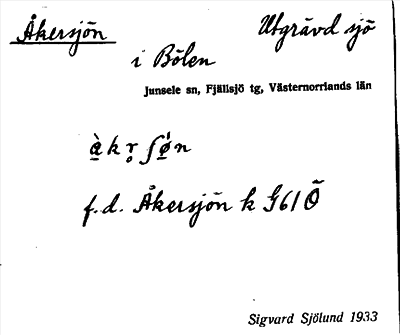 Åkersjön
Utgrävd sjö
i Bölen
Junsele sn, Fjällsjö tg, Västernorrlands län
f.d. Åkersjön k G61 Ö
Sigvard Sjölund 1933